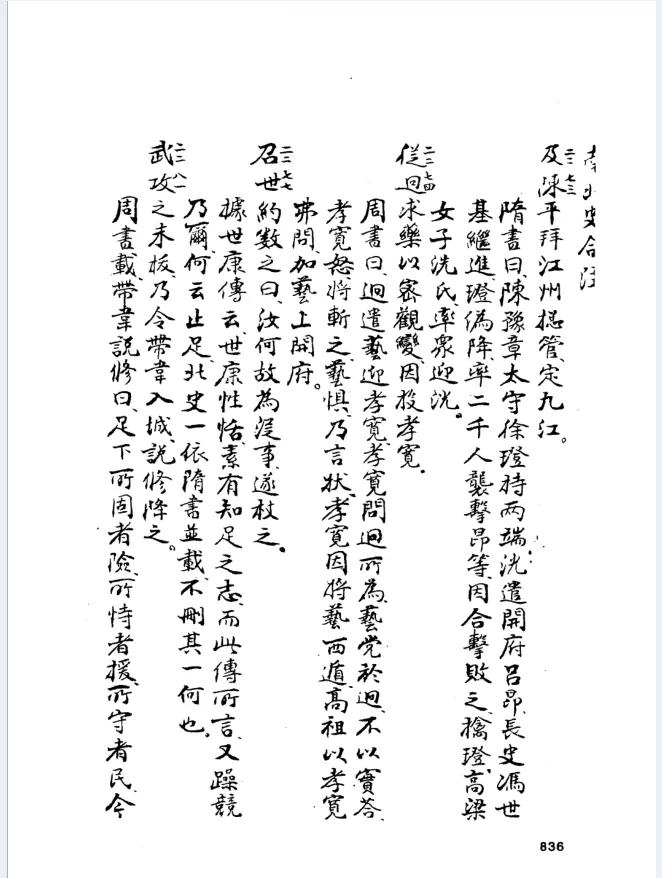 南北史合注
二二七三
及陳平拜江州總管定九江。
隋書曰、陳豫章太守徐璒持兩端、洸遣開府呂昂、長史馮世
基繼進、璒偽降、率二千人襲擊昂等、因合擊敗之、擒璒、高梁
女子洗氏、率衆迎洸。
二二七四
從迥求藥以密觀變、因投孝寬。
周書曰、迥遣藝迎孝寬、孝寬問迥所為、藝党於迥、不以實答、
孝寬怒、將斬之、藝惧、乃言狀、孝寬因將藝西遁、高祖以孝寬
弗問、加藝上開府。
二二七七
召世約數之曰、汝何故為從事、遂杖之。
據世康傳云、世康性恬素、有知足之志、而此傳所言、又躁競
乃爾、何云止足、北史一依隋書並載、不刪其一何也。
二二八一
武攻之未拔、乃令帶韋入城、說修降之。
周書載、帶韋說修曰、足下所固者險、所恃者援、所守者民、今
836